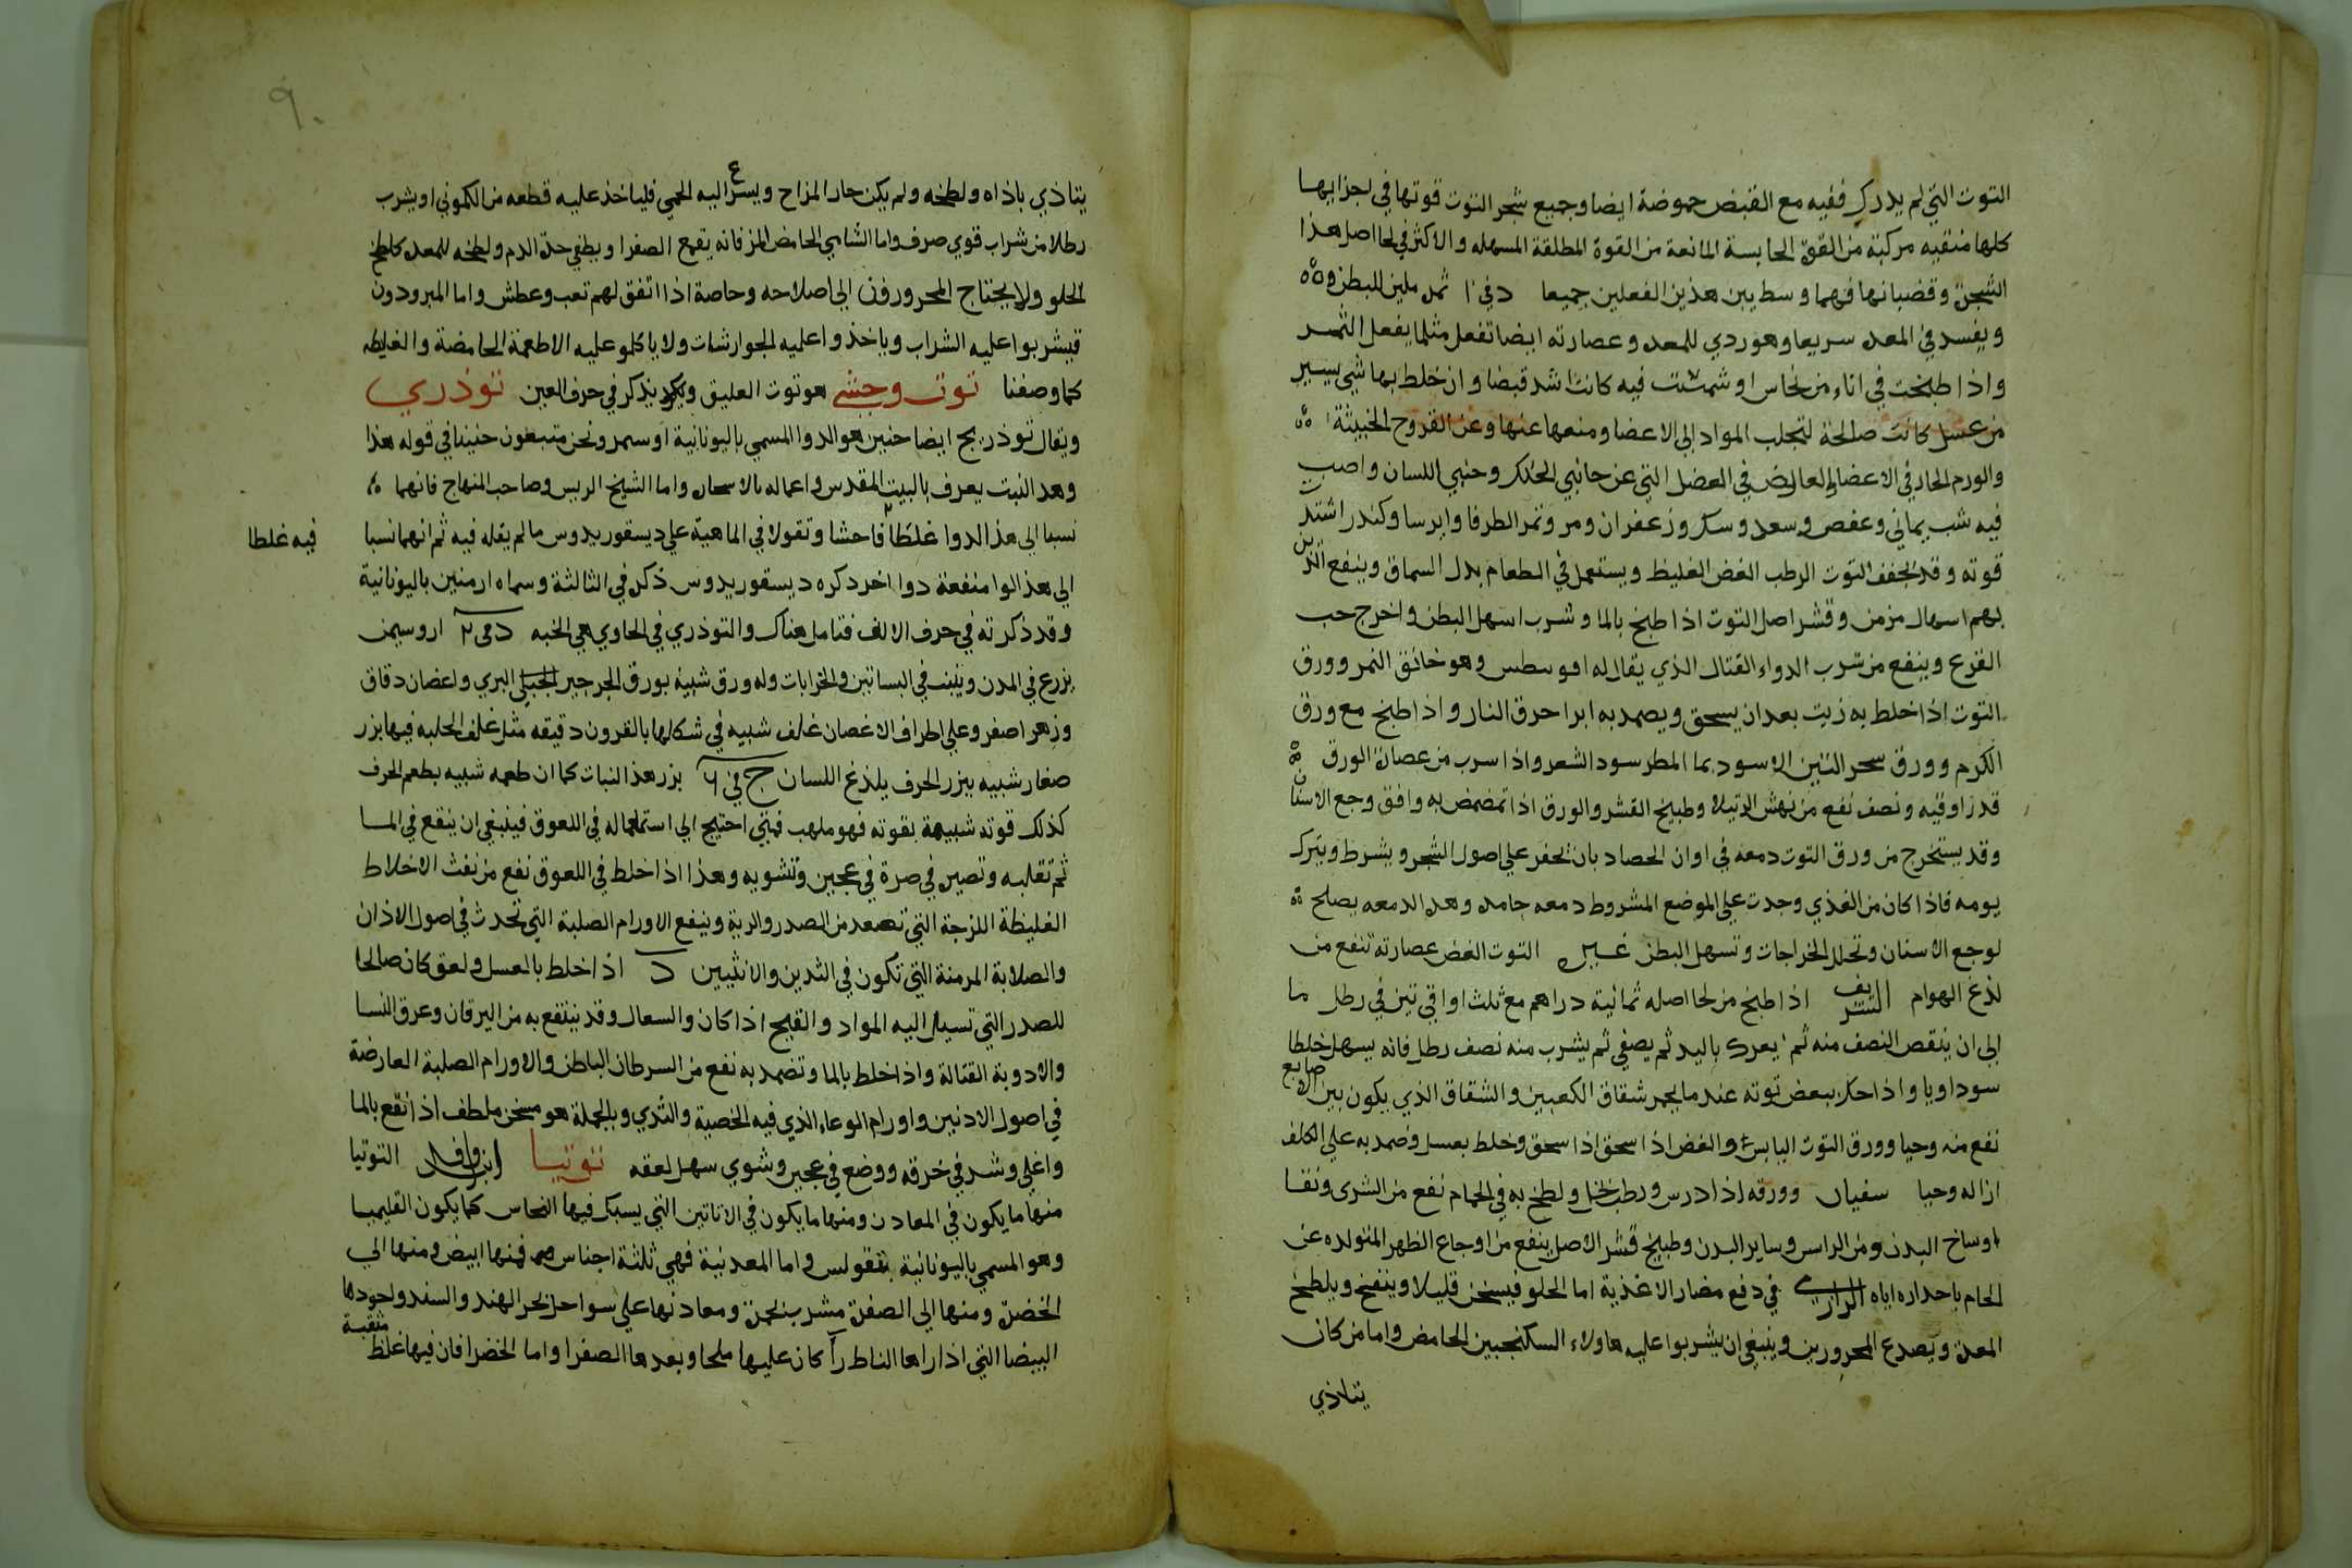 التوت التي لم يدرك ففيه مع القبض حموضة ايضا وجميع شجر التوت قوتها في اجزايها
كلها منقيه مركبة من القوة الحابسة المانعة من القوة المطلقة المسهله والاكثر في لحا اصل هذا
الشجرة وقضبانها فهما وسط بين هذين الفعلين جميعا د في ا ثمره ملين للبطن
ويفسد في المعده سريعا وهو ردي للمعده وعصارته ايضا تفعل مثلما يفعل الثمر
واذا طبخت في اناء من نحاس او شمست فيه كانت اشد قبضا وان خلط بها شي يسير
من عسل كانت صالحة لتجلب المواد الى الاعضا ومنعها عنها وعن القروح الخبيثة
والورم الحار في الاعضا العارض في العضل التي عن جانبي الحنك وجنبي اللسان واصيب
فيه شب يماني وعفص وسعد وسك وزعفران ومر وثمر الطرفا وايرسا وكندر اشتدت
قوته وقد يجفف التوت الرطب الغض الغليظ ويستعمل في الطعام بدل السماق وينفع الذين
بهم اسهال مزمن وقشر اصل التوت اذا طبخ بالما وشرب اسهل البطن واخرج حب
القرع وينفع من شرب الدواء القتال الذي يقال له افوسطس وهو خانق النمر وورق
التوت اذا خلط به زيت بعد ان يسحق ويضمد به ابرا حرق النار واذا طبخ مع ورق
الكرم وورق سجر التين الاسود بما المطر سود الشعر واذا سرب من عصارة الورق
قدر اوقيه ونصف نفع من نهش الرتيلا وطبيخ القشر والورق اذا تمضمض به وافق وجع الاسنان
وقد يستخرج من ورق التوت دمعه في اوان الحصاد بان يحفر على اصول الشجر ويشرط ويترك
يومه فاذا كان من الغذي وجدت على الموضع المشروط دمعه جامده وهذه الدمعه يصلح
لوجع الاسنان وتحلل الخراجات وتسهل البطن غيره التوت الغض عصارته تنفع من
لذغ الهوام الشريف اذا طبخ من لحا اصله ثمانية دراهم مع ثلث اواقي تين في رطل ما
الى ان ينقص النصف منه ثم يعرك باليد ثم يصفي ثم يشرب منه نصف رطل فانه يسهل خلطا
سوداويا واذا حك ببعض توته عندما يحمر شقاق الكعبين والشقاق الذي يكون بين الاصابع
نفع منه وحيا وورق التوت اليابس والغض اذا سحق اذا سحق وخلط بعسل وضمد به على الكلف
ازاله وحيا سفيان وورقه اذا درس ورطب بخل ولطخ به في الحمام نفع من الشرى ونقا
اوساخ البدن ومن الراس وساير البدن وطبيخ قشر الاصل ينفع من اوجاع الظهر المتولده عن
الخام باحداره اياه الرازي في دفع مضار الاغذية اما الحلو فيسخن قليلا وينفخ ويلطخ
المعدة ويصدع المحرورين وينبغي ان يشربوا عليه هاولاء السكنجبين الحامض واما من كان
يتاذي
٩٠
يتاذي باذاه ولطخه ولم يكن حار المزاج ويسرع اليه الحمي فلياخذ عليه قطعه من الكموني او يشرب
رطلا من شراب قوي صرف واما الشامي الحامض المز فانه يقمع الصفرا ويطفي حدة الدم ولطخه للمعده كلطخ
الحلو ولا يحتاج المحرورون الى اصلاحه وخاصة اذا اتفق لهم تعب وعطش واما المبرودون
فيشربوا عليه الشراب وياخذوا عليه الجوارشات ولا ياكلو عليه الاطعمة الحامضة والغليظه
كما وصفنا توت وحشي هو توت العليق ويذكر في حرف العين توذري
ويقال توذريج ايضا حنين هو الدوا المسمي باليونانية اوسمر ونحن متبعون حنينا في قوله هذا
وهذا النبت يعرف بالبيت المقدس واعماله بالاسحاره واما الشيخ الريس وصاحب المنهاج فانهما
نسبا الى هذا الدوا غلطا فاحشا وتقولا في الماهية على ديسقوريدوس ما لم يقله فيه ثم انهما نسبا
فيه غلطا
الى هذا الوا منفعة دوا اخر دكره ديسقوريدوس ذكره في الثالثة وسماه ارمنين باليونانية
وقد ذكرته في حرف الالف فتامل هناك والتوذري في الحاوي هي الخبه د في ٢ اروسيمن
يزرع في المدن وينبت في البساتين والخرابات وله ورق شبيه بورق الجرجير البري واغصان دقاق
وزهر اصفر وعلى اطراف الاغصان غلف شبيه في شكلها بالقرون دقيقه مثل غلف الحلبه فيها بزر
صغار شبيه ببزر الحرف يلذع اللسان ج في ٦ بزر هذا النبات كما ان طعمه شبيه بطعم الحرف
كذلك قوته شبيهة بقوته فهو ملهب فمتي احتيج الى استعماله في اللعوق فينبغي ان ينقع في الما
ثم تقليه وتصير في صرة في عجين وتشويه وهذا اذا خلط في اللعوق نفع من نفث الاخلاط
الغليظة اللزجة التي تصعد من الصدر والرية وينفع الاورام الصلبة التي تحدث في اصول الاذان
والصلابة المزمنة التي تكون في الثدين والانثيين د اذا خلط بالعسل ولعق كان صالحا
للصدر التي تسيل اليه المواد والقيح اذا كان والسعال وقد ينتفع به من اليرقان وعرق النسا
والادوية القتالة واذا خلط بالما وتضمد به نفع من السرطان الباطن والاورام الصلبة العارضة
في اصول الاذنين واورام الوعاء الذي فيه الخصية والثدي وبالجملة هو مسخن ملطف اذا نقع بالما
واغلي وشد في خرقه ووضع في عجين وشوي سهل لعقه توتيا ابن وافد التوتيا
منها ما يكون في المعادن ومنها ما يكون في الاتاتين التي يسبك فيها النحاس كما يكون القليميا
وهو المسمي باليونانية بمقولس واما المعدنية فهي ثلثة اجناس فمنها ابيض ومنها الى
الخضرة ومنها الى الصفرة مشرب بحمرة ومعادنها على سواحل بحر الهند والسند واجودها
البيضا التي اذا راها الناظر رآ كان عليها ملحا وبعدها الصفرا واما الخضرا فان فيها غلظ مثقبة